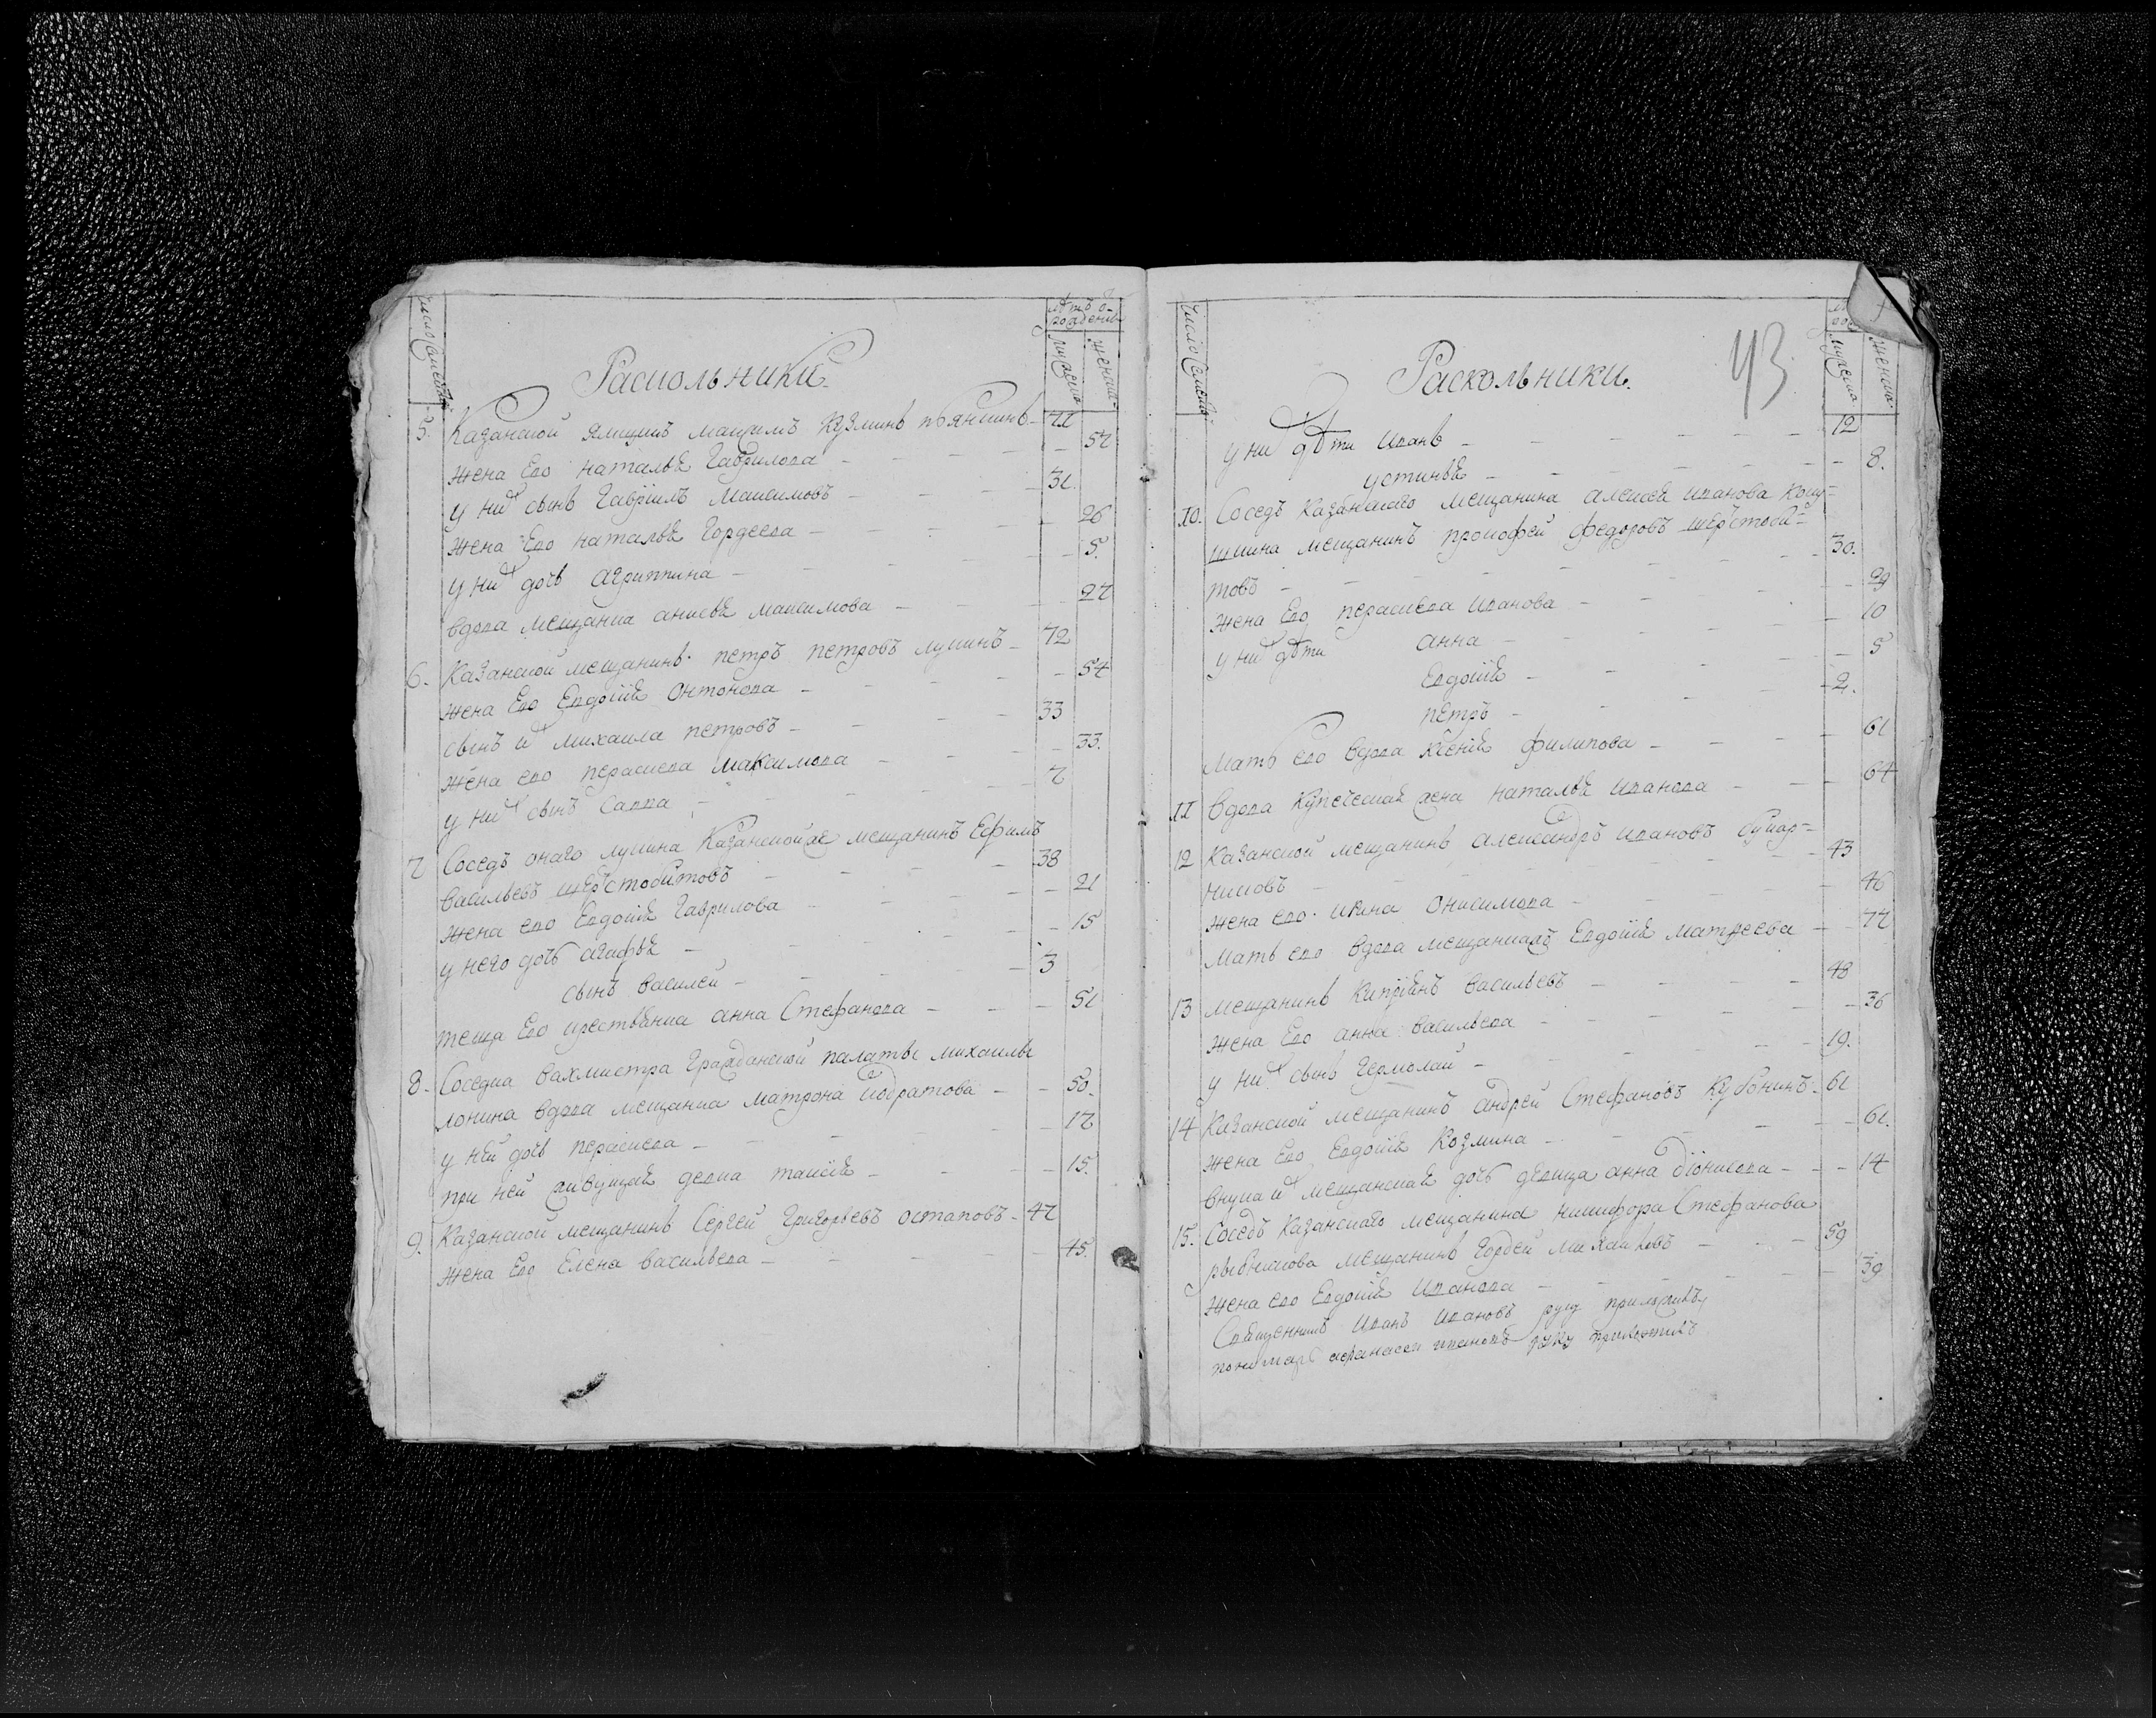 число семей
лѣтъ о-
рожденiи
мужеска
женска
Раскольники
5. Казанской ямщикъ Максимъ Кузминъ 71
жена Ево Наталья Гаврилова 57
у них сынъ Гавріилъ Максимовъ 31.
жена Ево Наталья Гордеева 26
у них дочь Агриппина 5.
вдова мещанка Максимова 27
6. Казанской мещанинъ Петръ Петровъ Лунинъ 72
жена Ево Евдокія Онтонова 54
сынъ их Михаила Петровъ 33
жена ево Парасковья Максимова 33.
у них сынъ Савва 7
7 Соседъ онаго Лунина Казанской же мещанинъ Ефимъ
Васильевъ Шерстобитовъ 38
жена ево Евдокія Гаврилова 21
у него дочь Агафья 15
сынъ Василей 3
теща Ево крестьянка Анна Стефанова 51
8. Соседка вахмистра Гражданской палаты Михаилы
вдова мещанка Матрона 50.
у ней дочь Парасковья 17
при ней живущая девка Таисія 15.
9. Казанской мещанинъ Сергей Григорьевъ Остаповъ 47
жена Ево Елена Васильева 45.
43
число семей
мужеска
женска
Раскольники.
у них дѣти Иванъ 12
Устинья 8.
10. Соседъ Казанскаго мещанина Алексея Иванова
мещанинъ Прокофей Федоровъ Шерстоби-
товъ 30.
жена Ево Парасковья Иванова 29
у них дѣти Анна 10
Евдокія 5
Петръ 2.
Мать ево вдова Ксенія Филипова 61
11 вдова Купеческая жена Наталья Иванова 64
12 Казанской мещанинъ Александръ Ивановъ
43
жена ево Ирина Онисимова 46
мать ево вдова мещанская Евдокія Матвеева 77
13 мещанинъ Кипріянъ Васильевъ 48
жена Ево Анна Васильева 36
у них сынъ Гермолай 19.
14 Казанской мещанинъ Андрей Стефановъ Кубонинъ 61
жена Ево Евдокія Козмина 61.
внука их мещанская дочь девица Анна Діонисова 14
15. Соседъ Казанскаго мещанина Никифора Стефанова
Рыбникова мещанинъ Гордей Михаиловъ 59
жена ево Евдокія Иванова 39
Священникъ Иванъ Ивановъ руку приложилъ
пономарь Афанасеи Ивановъ руку приложилъ